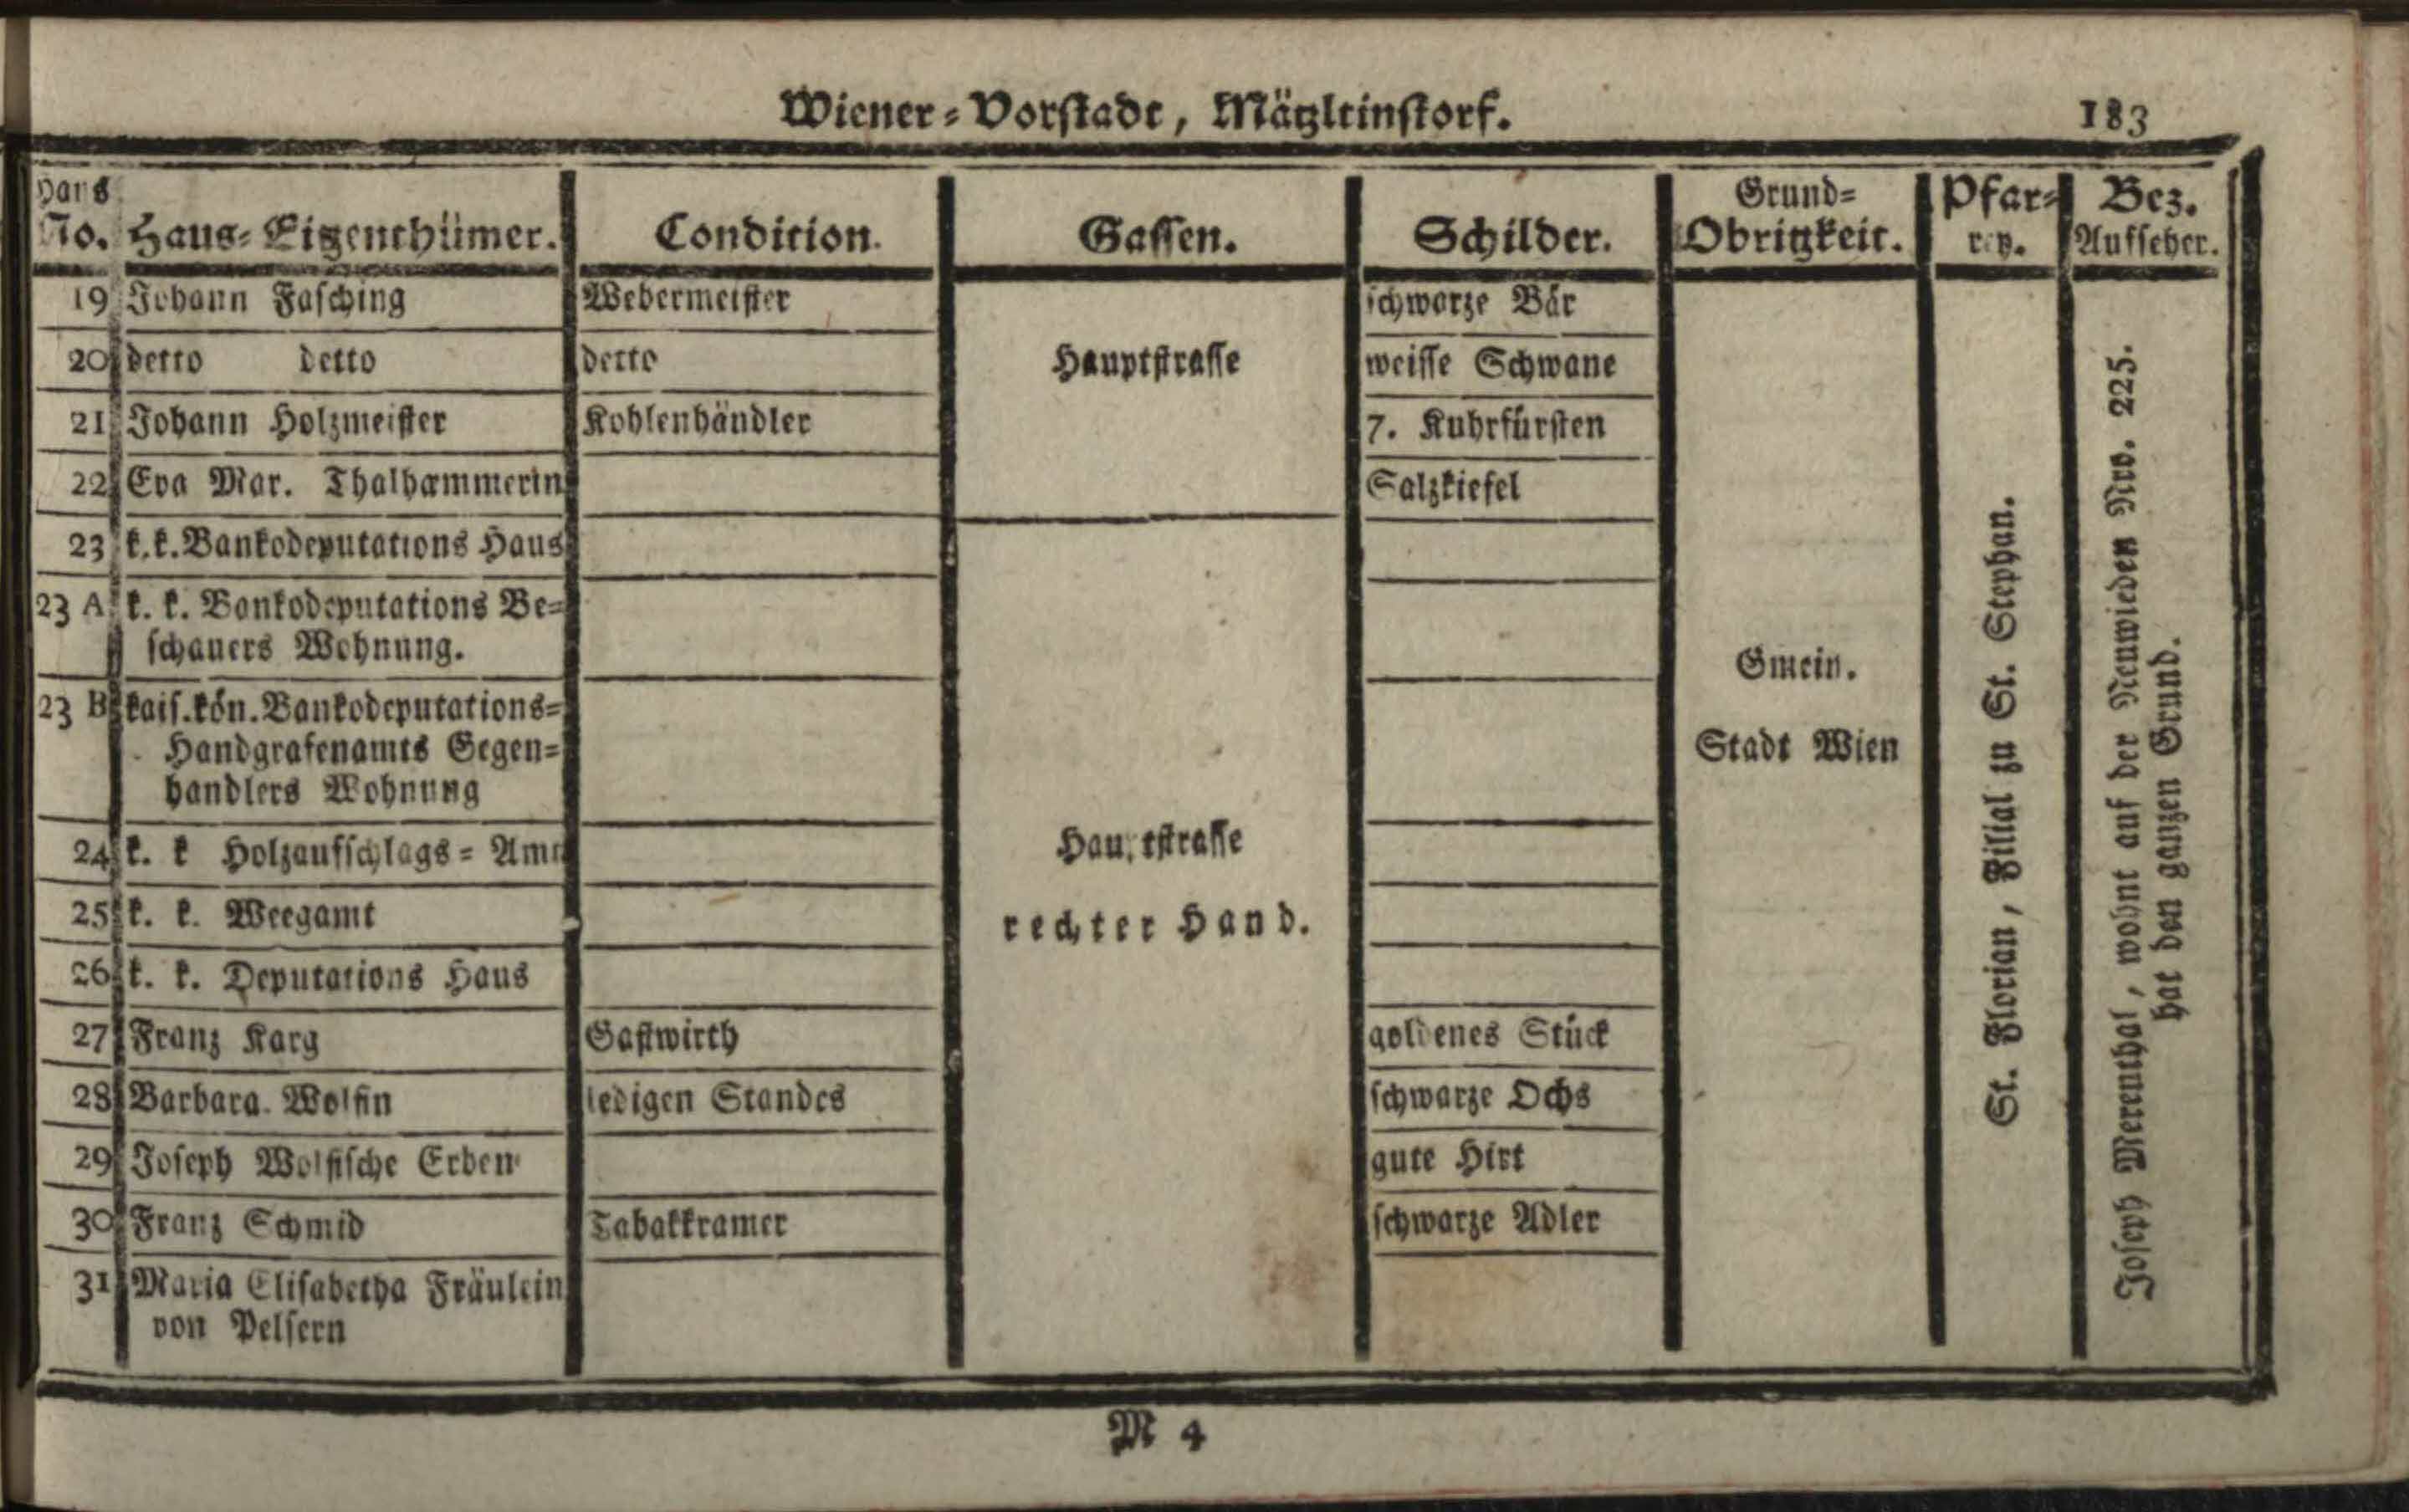 Wiener-Vorstadt, Mätzleinstorf.
183
Haus No.
Haus-Eigenthümer.
Condition.
Gassen.
Schilder.
Grund-Obrigkeit.
Pfarrey.
Bez. Aufseher.
19 Johann Fasching Webermeister schwarze Bär
20 detto detto detto Hauptstrasse weisse Schwane
21 Johann Holzmeister Kohlenhändler 7. Kuhrfürsten
22 Eva Mar. Thalhammerin Salzkiefel
23 k.k. Bankodeputations Haus
23 A k. k. Bankodeputations Be-
schauers Wohnung.
23 B kais. kön. Bankodeputations-
Handgrafenamts Gegen-
handlers Wohnung
24 k. k Holzaufschlags-Amt
25 k. k. Weegamt
26 k. k. Deputations Haus
Hauptstrasse
rechter Hand.
27 Franz Karg Gastwirth goldenes Stück
28 Barbara Wolfin ledigen Standes schwarze Ochs
29 Joseph Wolfische Erben gute Hirt
30 Franz Schmid Tabakkramer schwarze Adler
31 Maria Elisabetha Fräulein
von Pelsern
Gmein.
Stadt Wien
St. Florian, Filial zu St. Stephan.
Joseph Merenthal, wohnt auf der Neuwieden Nro. 225.
hat den ganzen Grund.
M 4